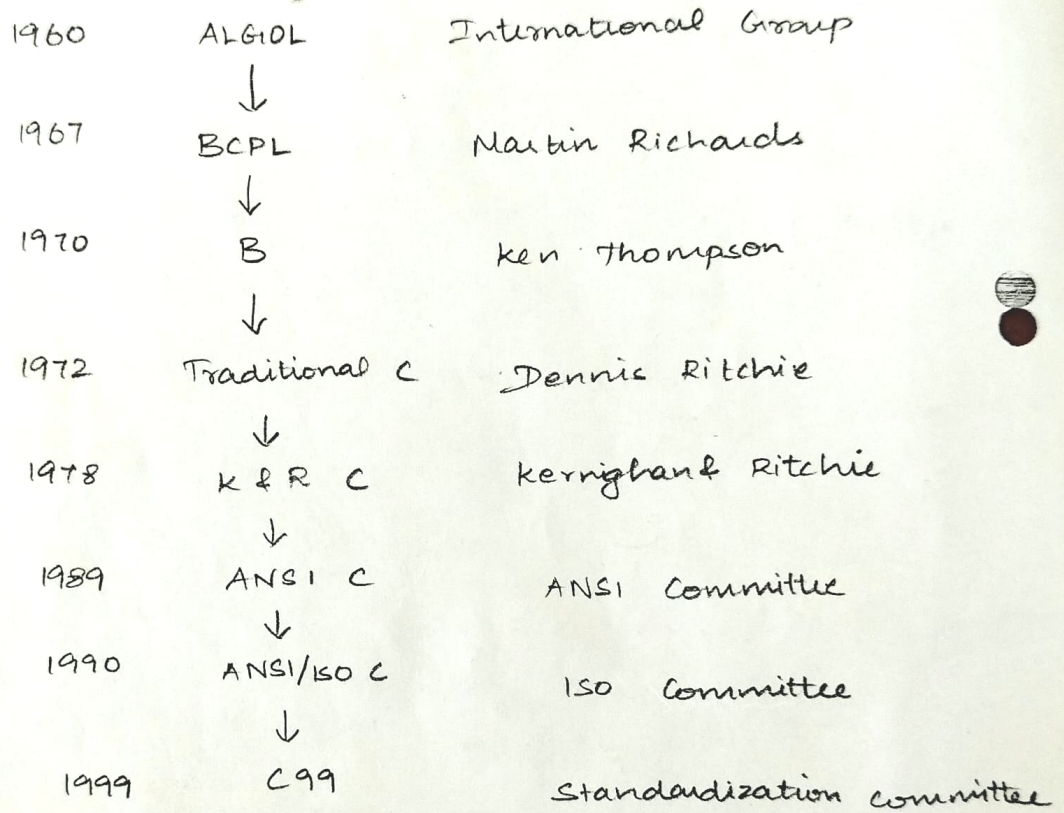 1960 ALGOL International Group
↓
1967 BCPL Martin Richards
↓
1970 B Ken Thompson
↓
1972 Traditional C Dennis Ritchie
↓
1978 K & R C Kernighan & Ritchie
↓
1989 ANSI C ANSI Committee
↓
1990 ANSI/ISO C ISO Committee
↓
1999 C99 Standardization committee